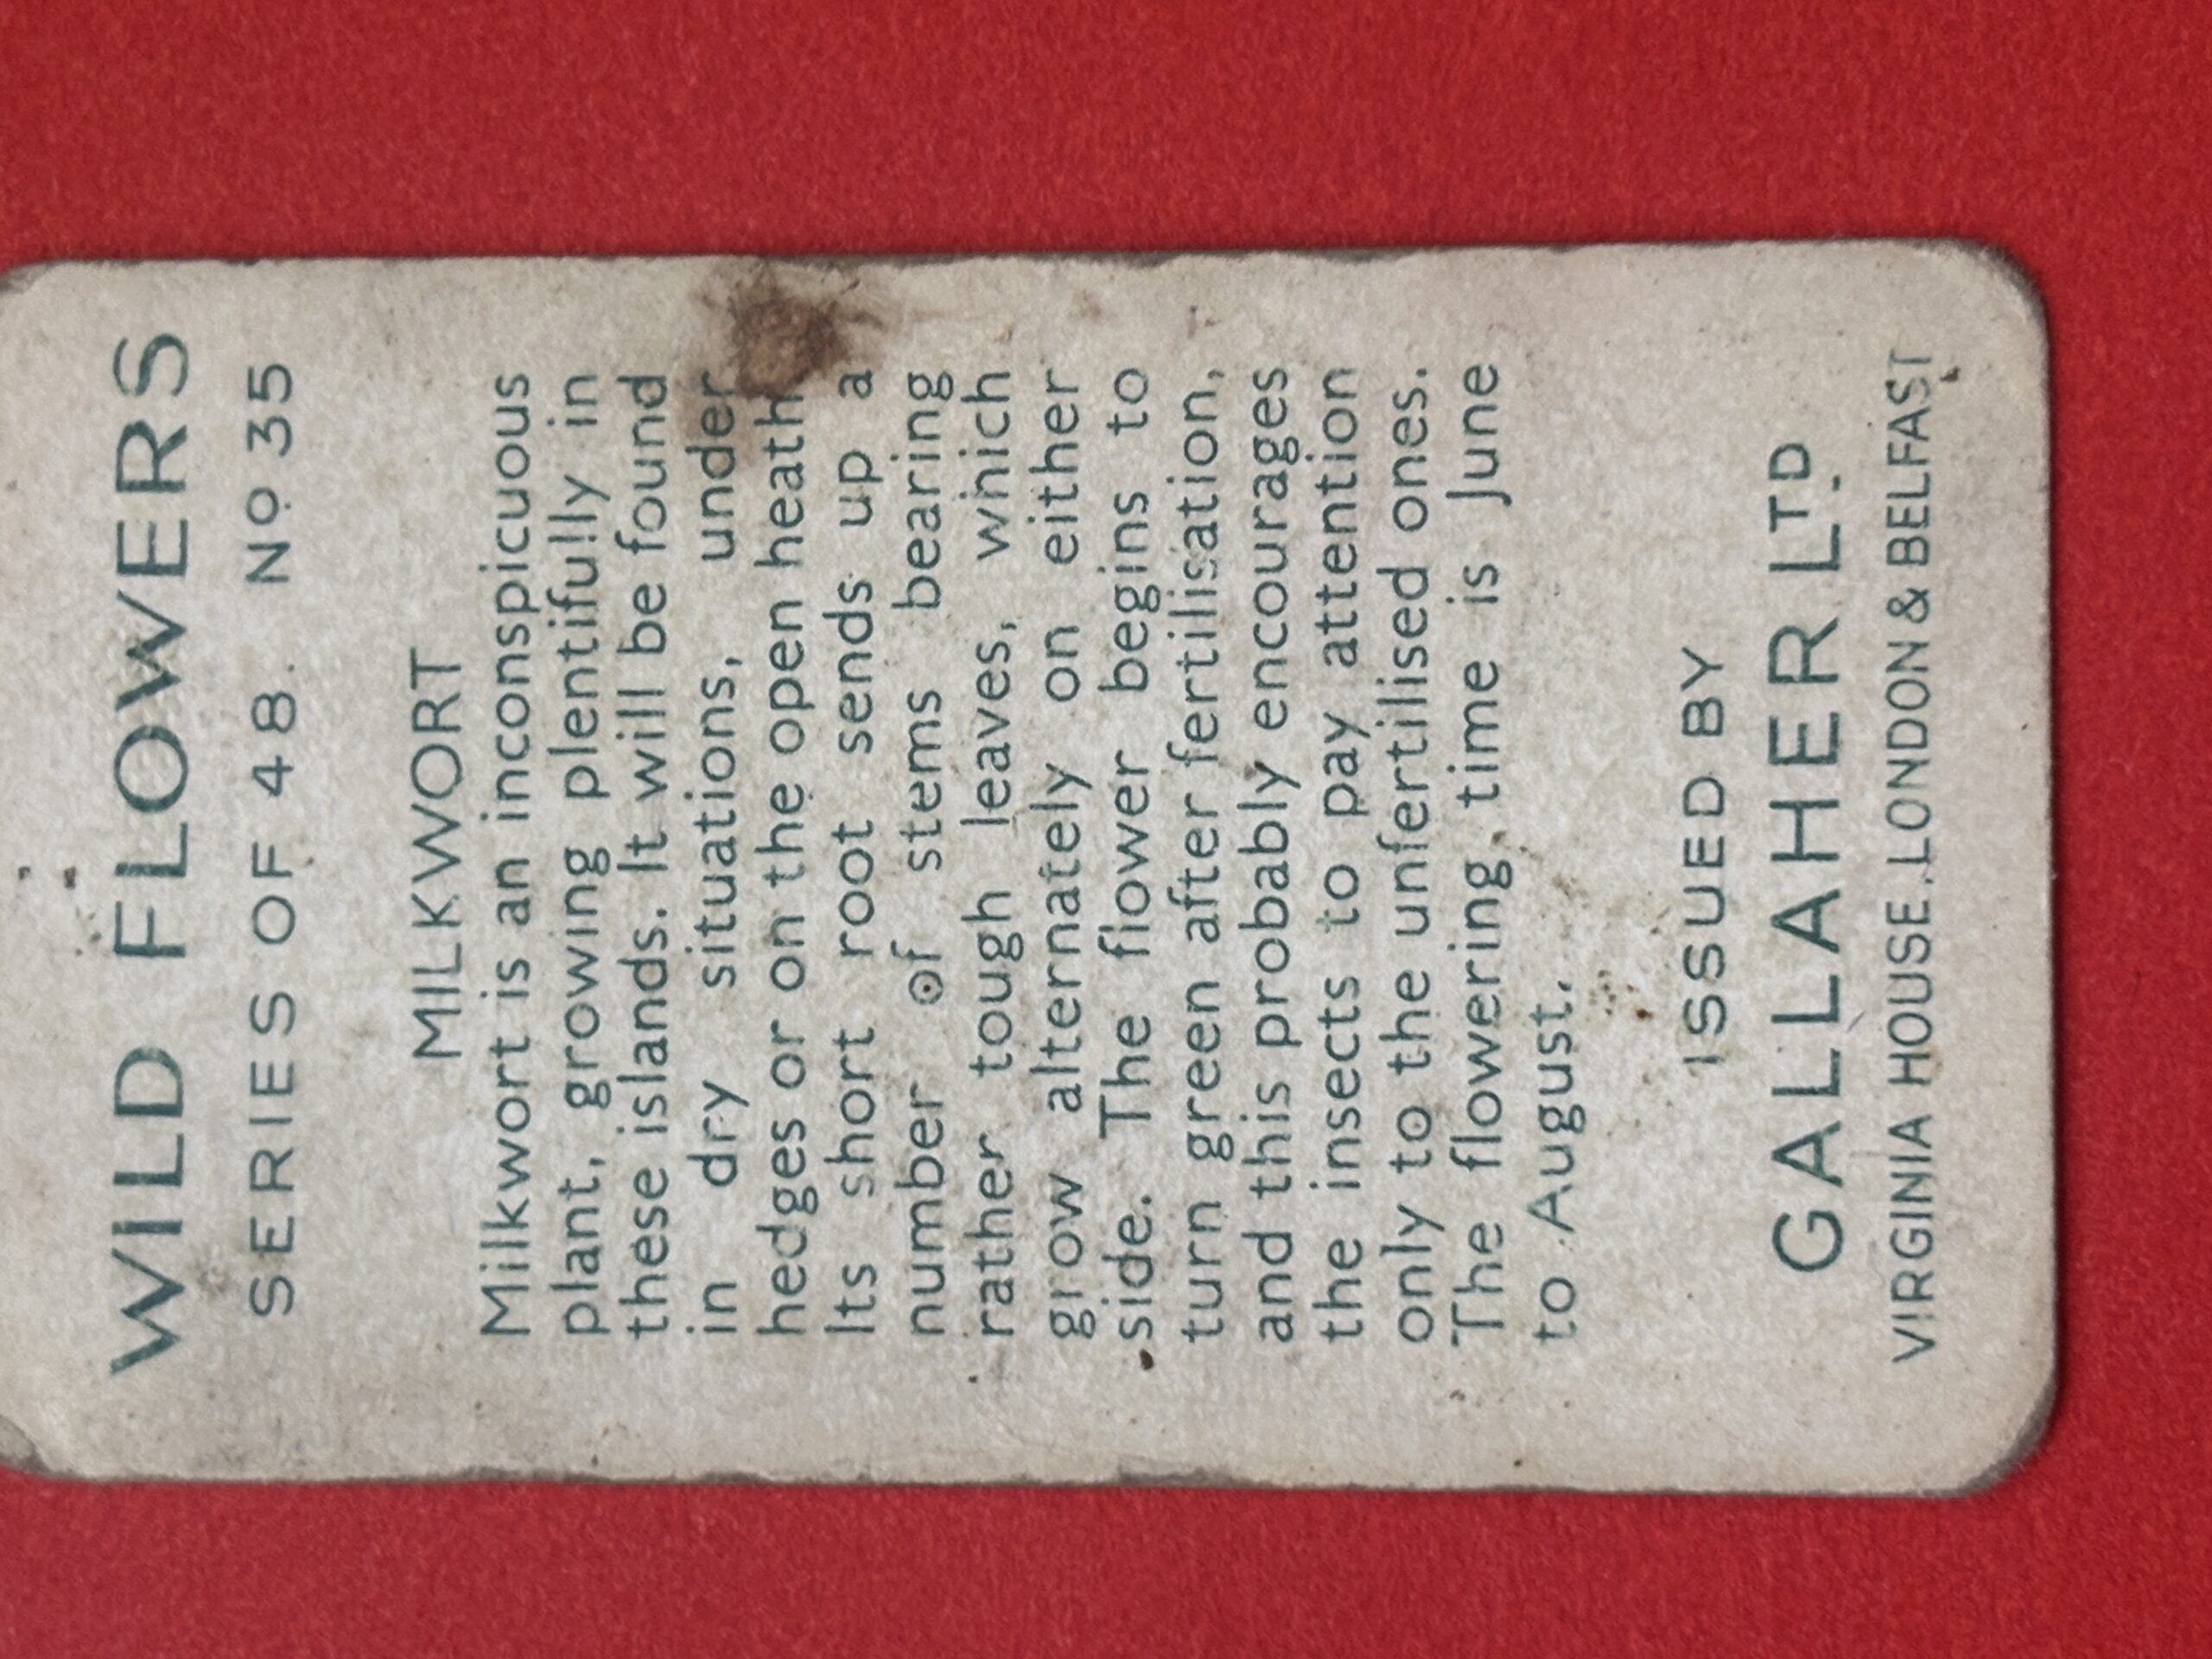 WILD FLOWERS
SERIES OF 48. No 35
MILKWORT
Milkwort is an inconspicuous
plant, growing plentifully in
these islands. It will be found
in dry situations, under
hedges or on the open heath.
Its short root sends up a
number of stems bearing
rather tough leaves, which
grow alternately on either
side. The flower begins to
turn green after fertilisation,
and this probably encourages
the insects to pay attention
only to the unfertilised ones.
The flowering time is June
to August.
ISSUED BY
GALLAHER LTD.
VIRGINIA HOUSE, LONDON & BELFAST